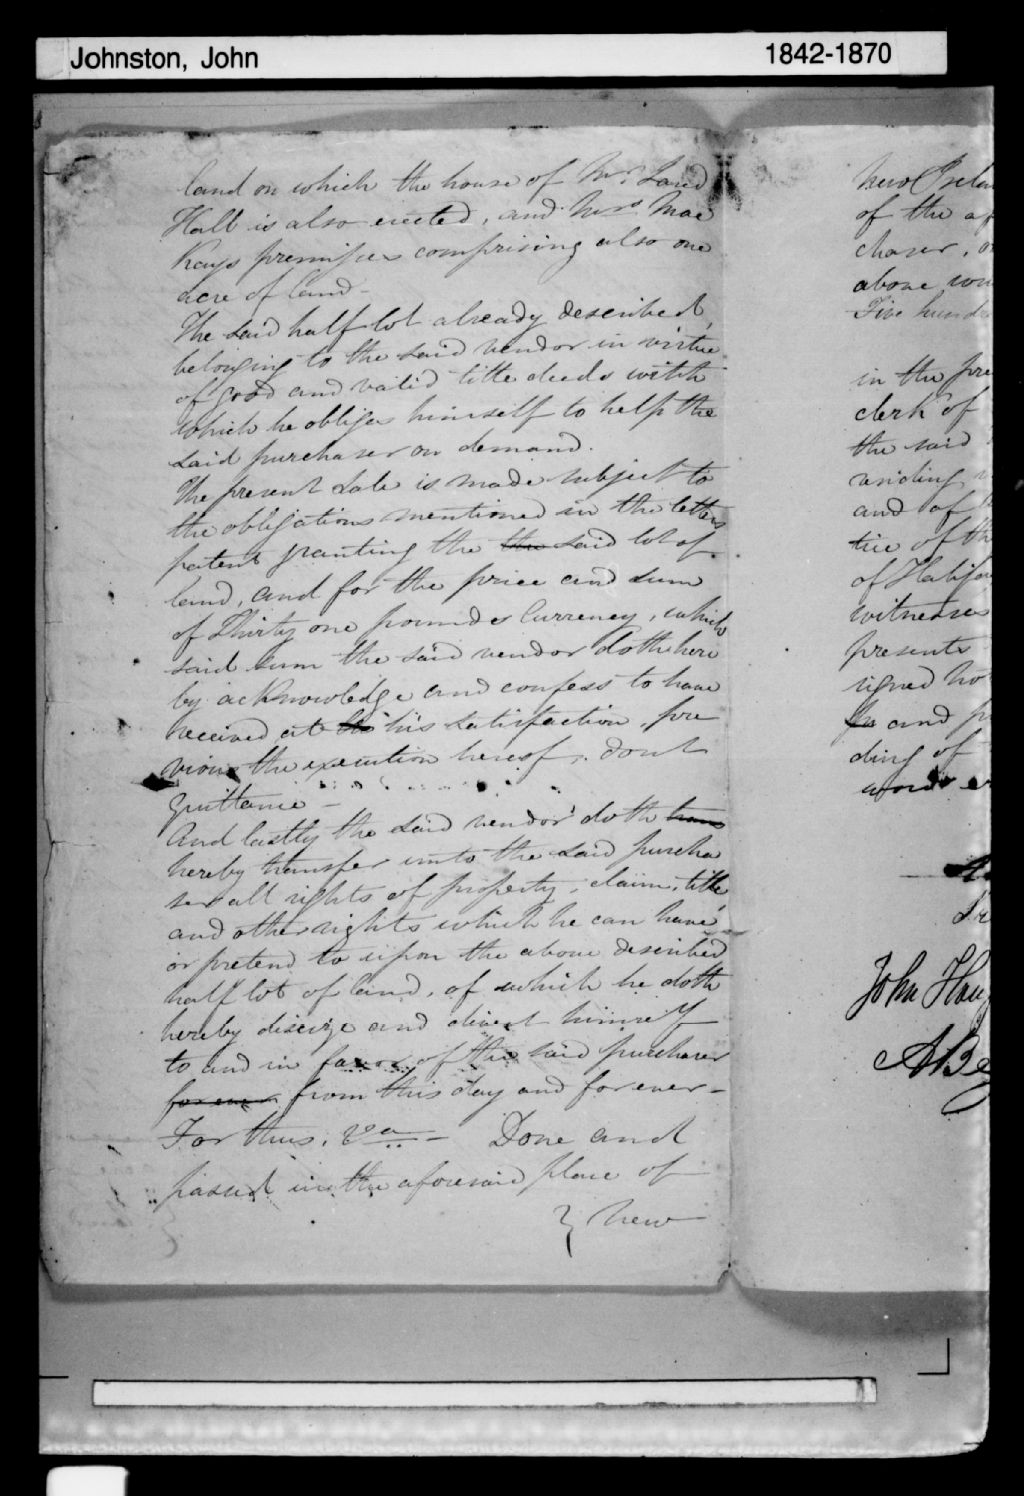 Johnston, John 1842-1870
land on which the house of Mr. Jared
Hall is also erected, and Mrs. Mac
Kays premisses comprising also one
acre of land -
The said half lot already described,
belonging to the said vendor in virtue
of good and valid title deeds with
which he obliges himself to help the
said purchaser on demand.
The present sale is made subject to
the obligations mentioned in the letters
patent granting the the said lot of
land, and for the price and sum
of Thirty one pounds Currency, which
said sum the said vendor doth here
by acknowledge and confess to have
received at his satisfaction, pre
vious the execution hereof, dont
quittance -
And lastly the said vendor doth
hereby transfer unto the said purcha
ser all rights of property, claim, title,
and other rights which he can have
or pretend to upon the above described
half lot of land, of which he doth
hereby disseize and divest himself
to and in favor of the said purchaser
for ever from this day and for ever -
For thus. &a - Done and
passed in the aforesaid place of
New
New
of the
chaser,
above
Five hundre
in the pre
clerk of
the said
and of
of th
of Halifa
witnesses
presents
signed
and
ding of
words
John